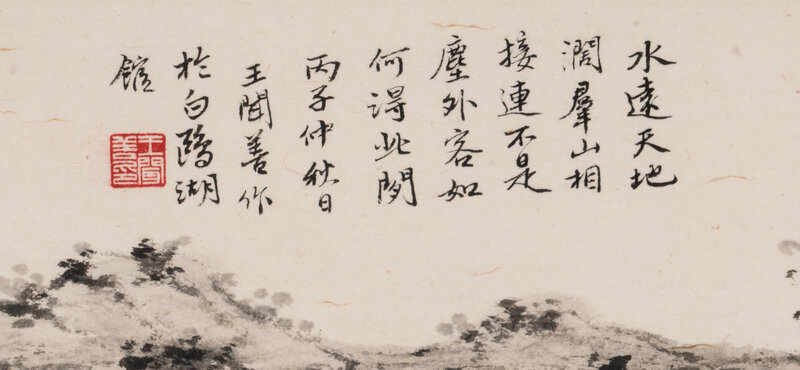 水遠天地
濶羣山相
接連不是
塵外客如
何得此閒
丙子仲秋日
王聞善作
於白鷗湖
館
王聞
善